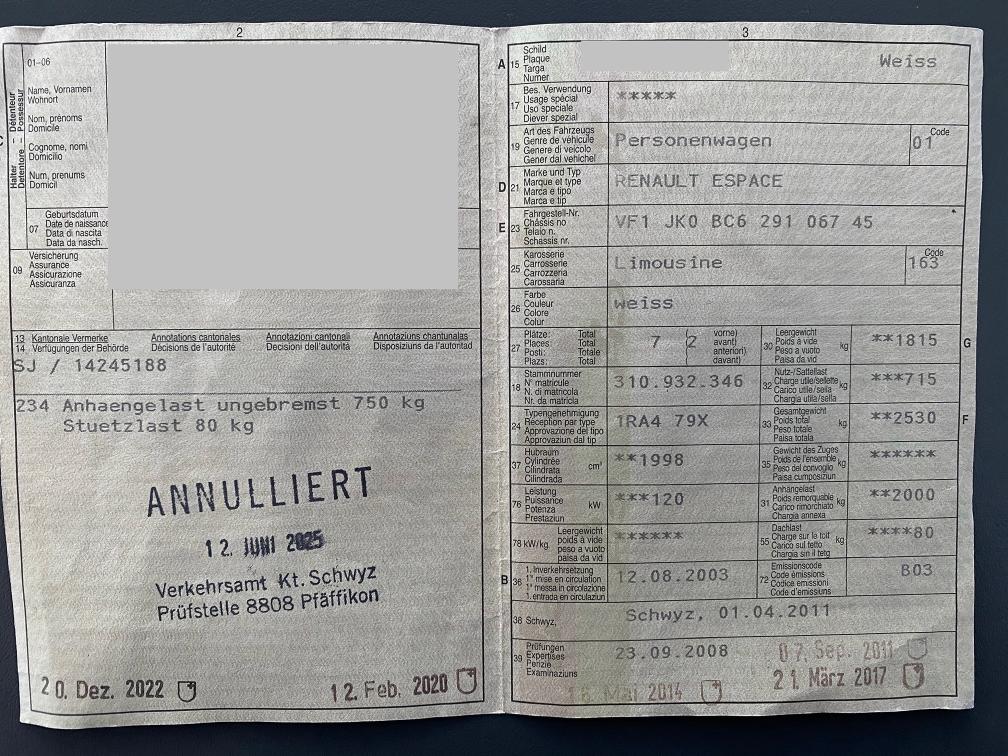 2
01-06
Halter – Détenteur
Detentore – Possessur
Name, Vornamen
Wohnort
Nom, prénoms
Domicile
Cognome, nomi
Domicilio
Num, prenums
Domicil
07
Geburtsdatum
Date de naissance
Data di nascita
Data da nasch.
09
Versicherung
Assurance
Assicurazione
Assicuranza
13 Kantonale Vermerke Annotations cantonales Annotazioni cantonali Annotaziuns chantunalas
14 Verfügungen der Behörde Décisions de l'autorité Decisioni dell'autorità Disposiziuns da l'autoritad
SJ / 14245188
234 Anhaengelast ungebremst 750 kg
Stuetzlast 80 kg
ANNULLIERT
12. JUNI 2025
Verkehrsamt Kt. Schwyz
Prüfstelle 8808 Pfäffikon
20. Dez. 2022
12. Feb. 2020
3
A 15
Schild
Plaque
Targa
Numer
Weiss
17
Bes. Verwendung
Usage spécial
Uso speciale
Diever spezial
*****
19
Art des Fahrzeugs
Genre de véhicule
Genere di veicolo
Gener dal vehichel
Personenwagen
Code
01
D 21
Marke und Typ
Marque et type
Marca e tipo
Marca e tip
RENAULT ESPACE
E 23
Fahrgestell-Nr.
Châssis no
Telaio n.
Schassis nr.
VF1 JK0 BC6 291 067 45
25
Karosserie
Carrosserie
Carrozzeria
Carossaria
Limousine
Code
163
26
Farbe
Couleur
Colore
Colur
weiss
27
Plätze: Total
Places: Total
Posti: Totale
Plazs: Total
7
(2
vorne)
avant)
anteriori)
davant)
30
Leergewicht
Poids à vide
Peso a vuoto
Paisa da vid
kg
**1815
G
18
Stammnummer
N° matricule
N. di matricola
Nr. da matricla
310.932.346
32
Nutz-/Sattellast
Charge utile/sellette
Carico utile/sella
Chargia utila/sella
kg
***715
24
Typengenehmigung
Réception par type
Approvazione del tipo
Approvaziun dal tip
1RA4 79X
33
Gesamtgewicht
Poids total
Peso totale
Paisa totala
kg
**2530
F
37
Hubraum
Cylindrée
Cilindrata
Cilindrada
cm³
**1998
35
Gewicht des Zuges
Poids de l'ensemble
Peso del convoglio
Paisa cumposiziun
kg
******
76
Leistung
Puissance
Potenza
Prestaziun
kW
***120
31
Anhängelast
Poids remorquable
Carico rimorchiato
Chargia annexa
kg
**2000
78 kW/kg
Leergewicht
poids à vide
peso a vuoto
paisa da vid
******
55
Dachlast
Charge sur le toit
Carico sul tetto
Chargia sin il tetg
kg
****80
B 36
1. Inverkehrsetzung
1re mise en circulation
1a messa in circolazione
1. entrada en circulaziun
12.08.2003
72
Emissionscode
Code émissions
Codice emissioni
Code d'emissiuns
B03
38 Schwyz,
Schwyz, 01.04.2011
39
Prüfungen
Expertises
Perizie
Examinaziuns
23.09.2008
07. Sep. 2011
16. Mai 2014
21. März 2017